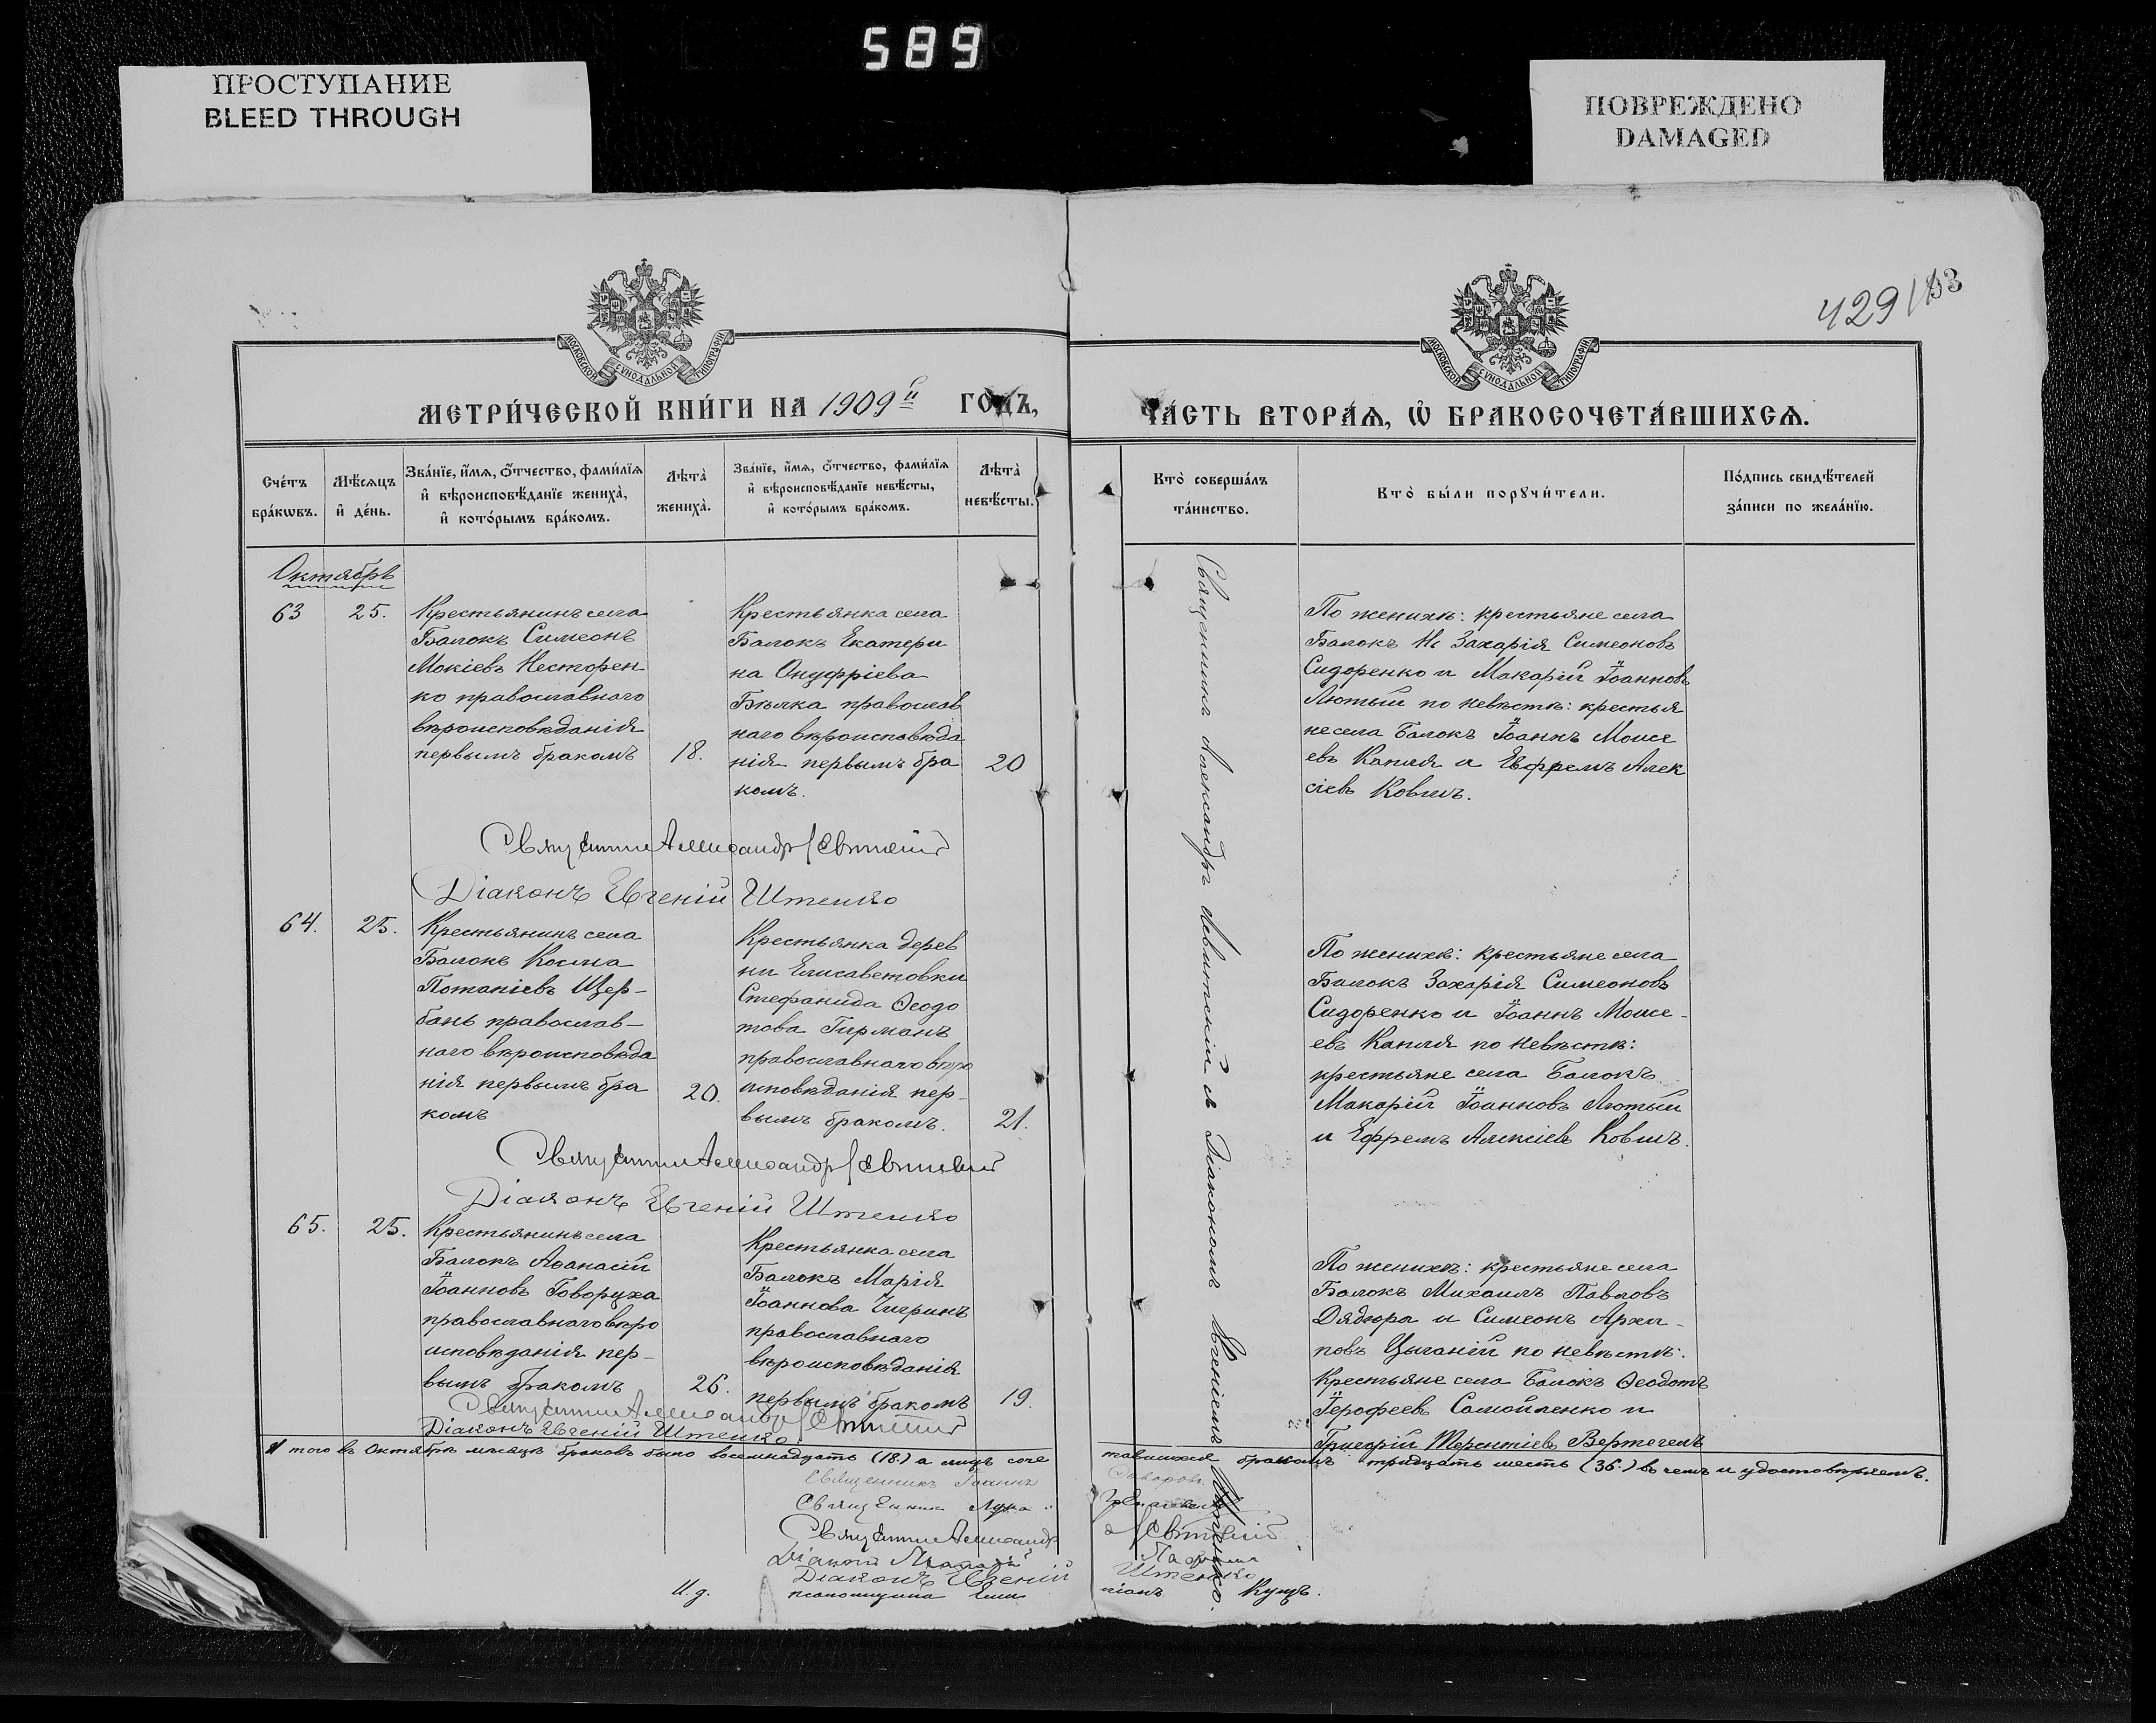 589
ПРОСТУПАНИЕ
BLEED THROUGH
ПОВРЕЖДЕНО
DAMAGED
429
МОСКОВСКОЙ СУНОДАЛЬНОЙ ТИПОГРАФІИ
МОСКОВСКОЙ СУНОДАЛЬНОЙ ТИПОГРАФІИ
МЕТРИ́ЧЕСКОЙ КНИ́ГИ НА 1909й ГОДЪ,
ЧА́СТЬ ВТОРА́Ѧ, Ѡ҆ БРАКОСОЧЕТА́ВШИХСѦ.
Сче́тъ
бра́кѡвъ.
Мѣ́сѧцъ
и҆ де́нь.
Зва́нїе, и҆́мѧ, ѻ҆́тчество, фамн́лїѧ
и҆ вѣроисповѣ́данїе жениха̀,
и҆ кото́рымъ бра́комъ.
Лѣта̀
жениха̀.
Зва́нїе, и҆́мѧ, ѻ҆́тчество, фами́лїѧ
и҆ вѣроисповѣ́данїе невѣ́сты,
и҆ кото́рымъ бра́комъ.
Лѣта̀
невѣ́сты.
Кто̀ соверша́лъ
та́инство.
Кто̀ бы́ли порꙋчи́тели.
По́дпись свидѣ́телей
за́писи по жела́нїю.
Октябрь
63
25.
Крестьянинъ села
Балокъ Симеонъ
Мокіевъ Несторен
ко православнаго
вѣроисповѣданія
первымъ бракомъ
18.
Крестьянка села
Балокъ Екатери
на Онуфріева
Бѣлка православ
наго вѣроисповѣда
нія первымъ бра
комъ.
20
Священникъ Александръ Левитскій и Діаконъ Евгеніемъ Штепко.
По женихѣ: крестьяне села
Балокъ Захарія Симеоновъ
Сидоренко и Макарій Іоанновъ
Лютый по невѣстѣ: крестья
не села Балокъ Іоаннъ Моисе
евъ Капля и Ефремъ Алек
сіевъ Ковшъ.
Священникъ Александръ Левитскій
Діаконъ Евгеній Штепко
64.
25.
Крестьянинъ села
Балокъ Косма
Потапіевъ Щер-
бань православ-
наго вѣроисповѣда
нія первымъ бра
комъ
20.
Крестьянка дерев
ни Елисаветовки
Стефанида Ѳеодо
това Гирманъ
православнаго вѣро
исповѣданія пер-
вымъ бракомъ.
21.
По женихѣ: крестьяне села
Балокъ Захарія Симеоновъ
Сидоренко и Іоаннъ Моисе-
евъ Капля по невѣстѣ:
крестьяне села Балокъ
Макарій Іоанновъ Лютый
и Ефремъ Алексіевъ Ковшъ.
Священникъ Александръ Левитскій
Діаконъ Евгеній Штепко
65.
25.
Крестьянинъ села
Балокъ Аѳанасій
Іоанновъ Говоруха
православнаго вѣро
исповѣданія пер-
вымъ бракомъ
26.
Крестьянка села
Балокъ Марія
Іоаннова Чигринъ
православнаго
вѣроисповѣданія
первымъ бракомъ
19.
По женихѣ: крестьяне села
Балокъ Михаилъ Павловъ
Дядюра и Симеонъ Архи-
повъ Цыганій по невѣстѣ:
Крестьяне села Балокъ Ѳеодотъ
Іерофеевъ Самойленко и
Григорій Терентіевъ Вертегелъ
Священникъ Александръ Левитскій
Діаконъ Евгеній Штепко
И того въ Октябрѣ мѣсяцѣ браковъ было восемнадцать (18) а лицъ соче
тавшихся бракомъ тридцать шесть (36.) въ чемъ и удостовѣряемъ.
Священникъ Іоаннъ
Священникъ Лука
Священникъ Александръ Левитскій
Діаконъ
Діаконъ Евгеній Штепко
И. д. псаломщика Куцъ.